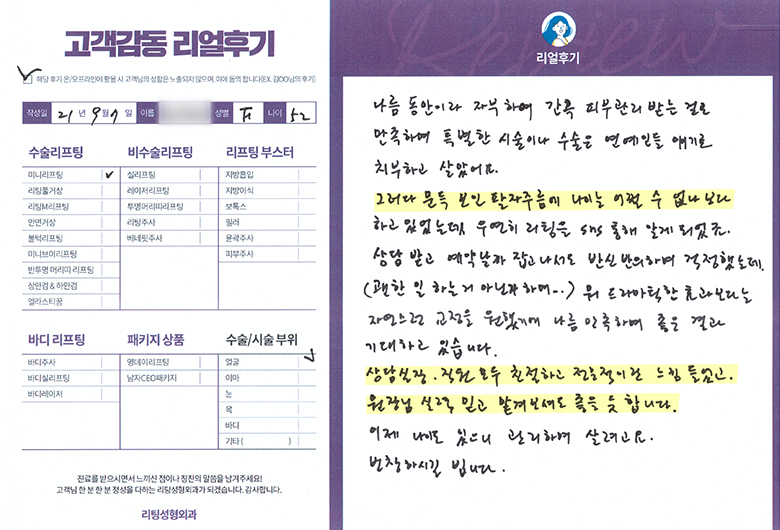 고객감동 리얼후기
해당 후기 온/오프라인에 활용 시 고객님의 성함은 노출되지 않으며, 이에 동의 합니다(EX. 김OO님의 후기)
작성일 21년 9월 7일 이름 성별 F 나이 52
수술리프팅
미니리프팅 ✓
리팅풀거상
리팅M리프팅
안면거상
볼턱리프팅
미니브이리프팅
반투명 머리띠 리프팅
상안검 & 하안검
엘라스티꿈
비수술리프팅
실리프팅
레이저리프팅
투명머리띠리프팅
리팅주사
베네핏주사
리프팅 부스터
지방흡입
지방이식
보톡스
필러
윤곽주사
피부주사
바디 리프팅
바디주사
바디실리프팅
바디레이저
패키지 상품
영데이리프팅
남자CEO패키지
수술/시술 부위
얼굴 ✓
이마
눈
목
바디
기타 ( )
진료를 받으시면서 느끼신 점이나 칭찬의 말씀을 남겨주세요!
고객님 한 분 한 분 정성을 다하는 리팅성형외과가 되겠습니다. 감사합니다.
리팅성형외과
Review
리얼후기
나름 동안이라 자부하며 간혹 피부관리 받는 걸로
만족하며 특별한 시술이나 수술은 연예인들 얘기로
치부하고 살았어요.
그러다 문득 보인 팔자주름에 나이는 어쩔 수 없나보다
하고 있었는데, 우연히 리팅을 sns 통해 알게 되었죠.
상담 받고 예약날짜 잡고나서도 반신반의하며 걱정했는데,
(괜한 일 하는거 아닌가 하며...) 뭐 드라마틱한 효과보다는
자연스런 교정을 원했기에 나름 만족하며 좋은 결과
기대하고 있습니다.
상담실장, 직원 모두 친절하고 전문적이란 느낌 들었고,
원장님 실력 믿고 맡겨보셔도 좋을 듯 합니다.
이제 나이도 있으니 관리하며 살려고요.
번창하시길 빕니다.